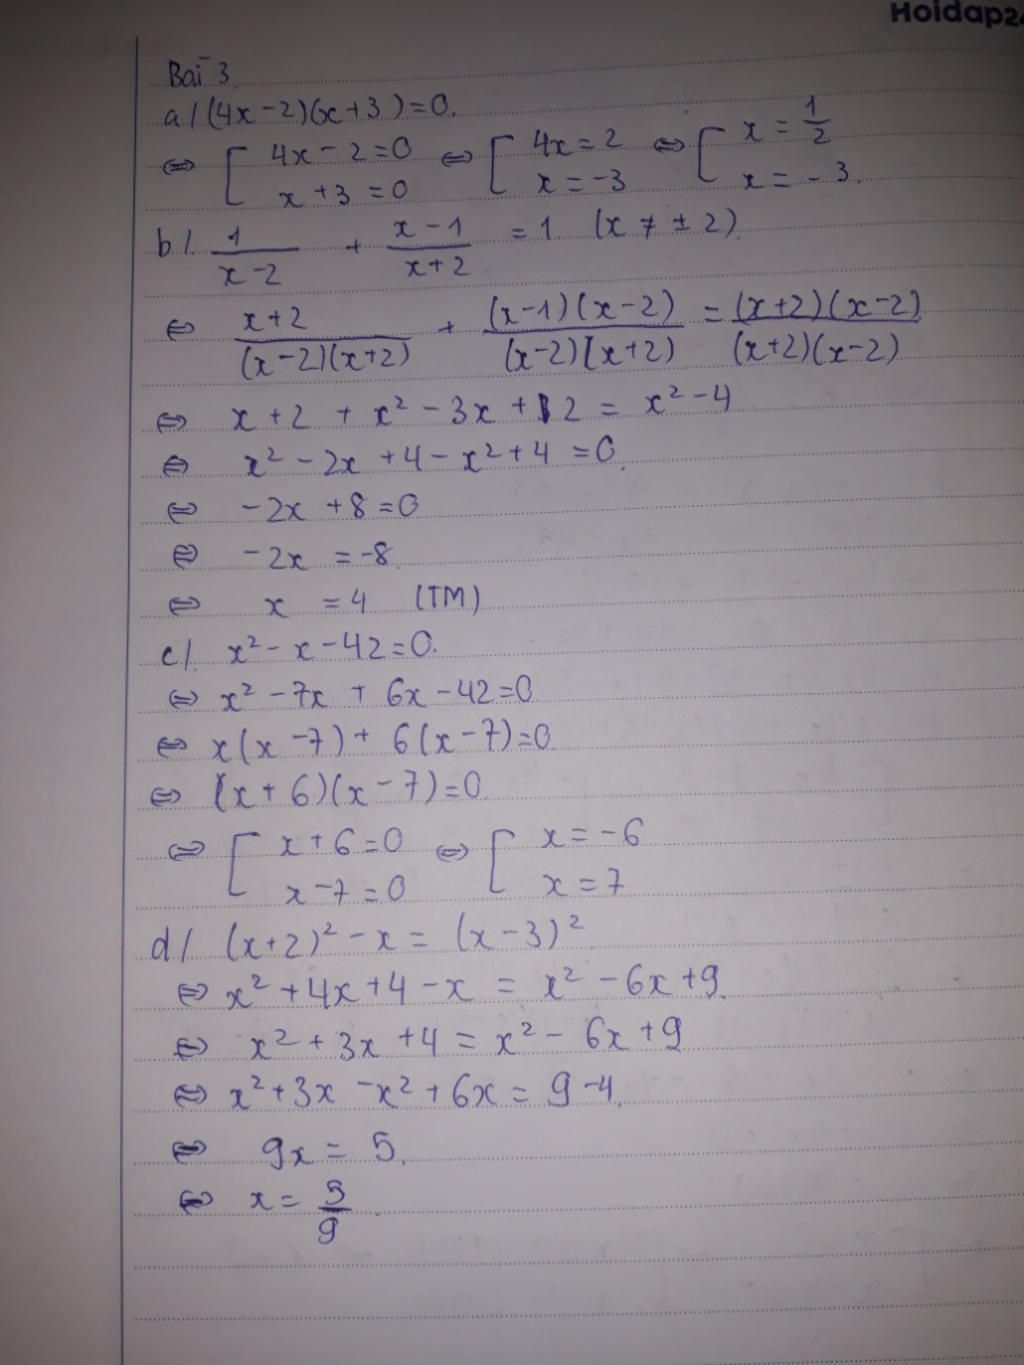 Hoidap2
Bài 3.
a/ (4x-2)(x+3)=0.
⇔ [ 4x-2=0 ⇔ [ 4x=2 ⇔ [ x=1/2
x+3=0 x=-3 x=-3.
b/. 1/(x-2) + (x-1)/(x+2) = 1 (x ≠ ±2).
⇔ (x+2)/((x-2)(x+2)) + ((x-1)(x-2))/((x-2)(x+2)) = ((x+2)(x-2))/((x+2)(x-2))
⇔ x+2 + x² - 3x + 2 = x² - 4
⇔ x² - 2x + 4 - x² + 4 = 0.
⇔ -2x + 8 = 0
⇔ -2x = -8.
⇔ x = 4 (TM)
c/. x² - x - 42 = 0.
⇔ x² - 7x + 6x - 42 = 0
⇔ x(x-7) + 6(x-7) = 0.
⇔ (x+6)(x-7) = 0.
⇔ [ x+6=0 ⇔ [ x=-6
x-7=0 x=7
d/ (x+2)² - x = (x-3)²
⇔ x² + 4x + 4 - x = x² - 6x + 9.
⇔ x² + 3x + 4 = x² - 6x + 9
⇔ x² + 3x - x² + 6x = 9 - 4.
⇔ 9x = 5.
⇔ x = 5/9.